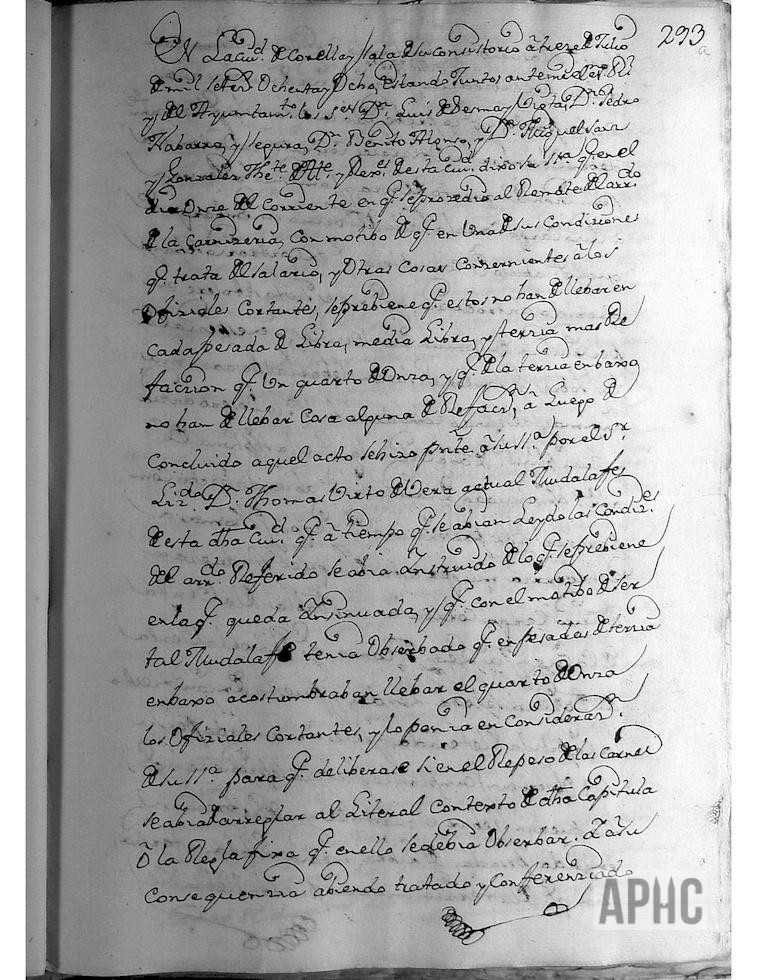 293
EN La ciud. de Corella, y sala de su consistorio â treze de Julio
de mil setezs. Ochenta y Ocho, estando Juntos ante mi el esno. Rl.
y del Ayuntamto. los Ses. Dn. Luis de Sesma y Dn. Pedro
Nabarro, y segura, Dn. Benito Alonso, y Dn. Miguel sanz
y Gonzalez Thete. de Alte. y Rexes. de esta ciud. dixo su ssa. q. en el
dia Onze del Corriente en q. se prozedio al Remate del arrdo.
de la Carnizeria, con motibo de q. en Una de sus Condiziones
q. trata del salario, y Otras cosas conzernientes â los
Ofiziales Cortantes, se prebiene q. estos no han de llebar en
cada pesada de Libra, media Libra, y terzia mas Re
fazzion q. Un quarto de Onza, y q. de la terzia en baxo
no han de llebar Cosa alguna de Refaczn. â Luego de
Concluido aquel acto se hizo pnte. â su ssa. por el Sr.
Lizdo. Dn. Thomas Virto de Vera actual Mudalafe
de esta dha Ciud. q. â tiempo q. se abian Leydo las Condizes.
del arrdo. Referido se abia Instruido de lo q. se prebiene
en la q. queda Insinuada, y q. con el motibo de ser
tal Mudalafe tenia Obserbado q. en pesadas de terzia
en baxo acostumbraban llebar el quarto de Onza
los Ofiziales Cortantes, y lo ponia en Considerazn.
de su ssa. para q. deliberase si en el Repeso de las Carnes
se abia de arreglar al Literal Contexto de dha Capitula
ô la Regla fixa q. en ello se debia Obserbar. I a su
Consequenzia abiendo tratado y Conferenziado
APHC